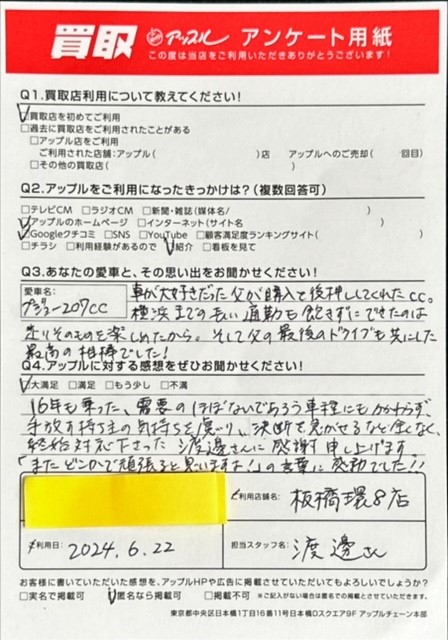 買取 アップル アンケート用紙
この度は当店をご利用いただきありがとうございます!
Q1.買取店利用について教えてください!
☑買取店を初めてご利用
□過去に買取店をご利用されたことがある
□アップル店をご利用
ご利用された店舗:アップル( )店 アップルへのご売却( 回目)
□その他の買取店( )
Q2.アップルをご利用になったきっかけは?(複数回答可)
□テレビCM □ラジオCM □新聞・雑誌(媒体名/ )
☑アップルのホームページ □インターネット(サイト名 )
☑Googleクチコミ □SNS □YouTube □顧客満足度ランキングサイト( )
□チラシ □利用経験があるので ☑紹介 □看板を見て
Q3.あなたの愛車と、その思い出をお聞かせください!
愛車名:
プジョー207CC
車が大好きだった父が購入を後押ししてくれたCC。
横浜までの長い通勤も飽きずにできたのは
走りそのものを楽しめたから。そして父の最後のドライブも共にした
最高の相棒でした!
Q4.アップルに対する感想をぜひお聞かせください!
☑大満足 □満足 □もう少し □不満
16年も乗った、需要のほぼないであろう車種にもかかわらず、
手放す持ち主の気持ちを慮り、決断を急がせるなど全くなく、
終始対応下さった渡邊さんに感謝申し上げます。
「またどこかで頑張ると思いますよ!」の言葉に感動でした!!
ご利用店舗名: 板橋環8店
ご利用日: 2024.6.22
担当スタッフ名: 渡邊さん
お客様に書いていただいた感想を、アップルHPや広告に掲載させていただいてもよろしいでしょうか?
□実名で掲載可 ☑匿名なら掲載可 □掲載不可 ※ご記入がない場合は匿名での掲載とさせていただきます。
東京都中央区日本橋1丁目16番11号日本橋Dスクエア9F アップルチェーン本部